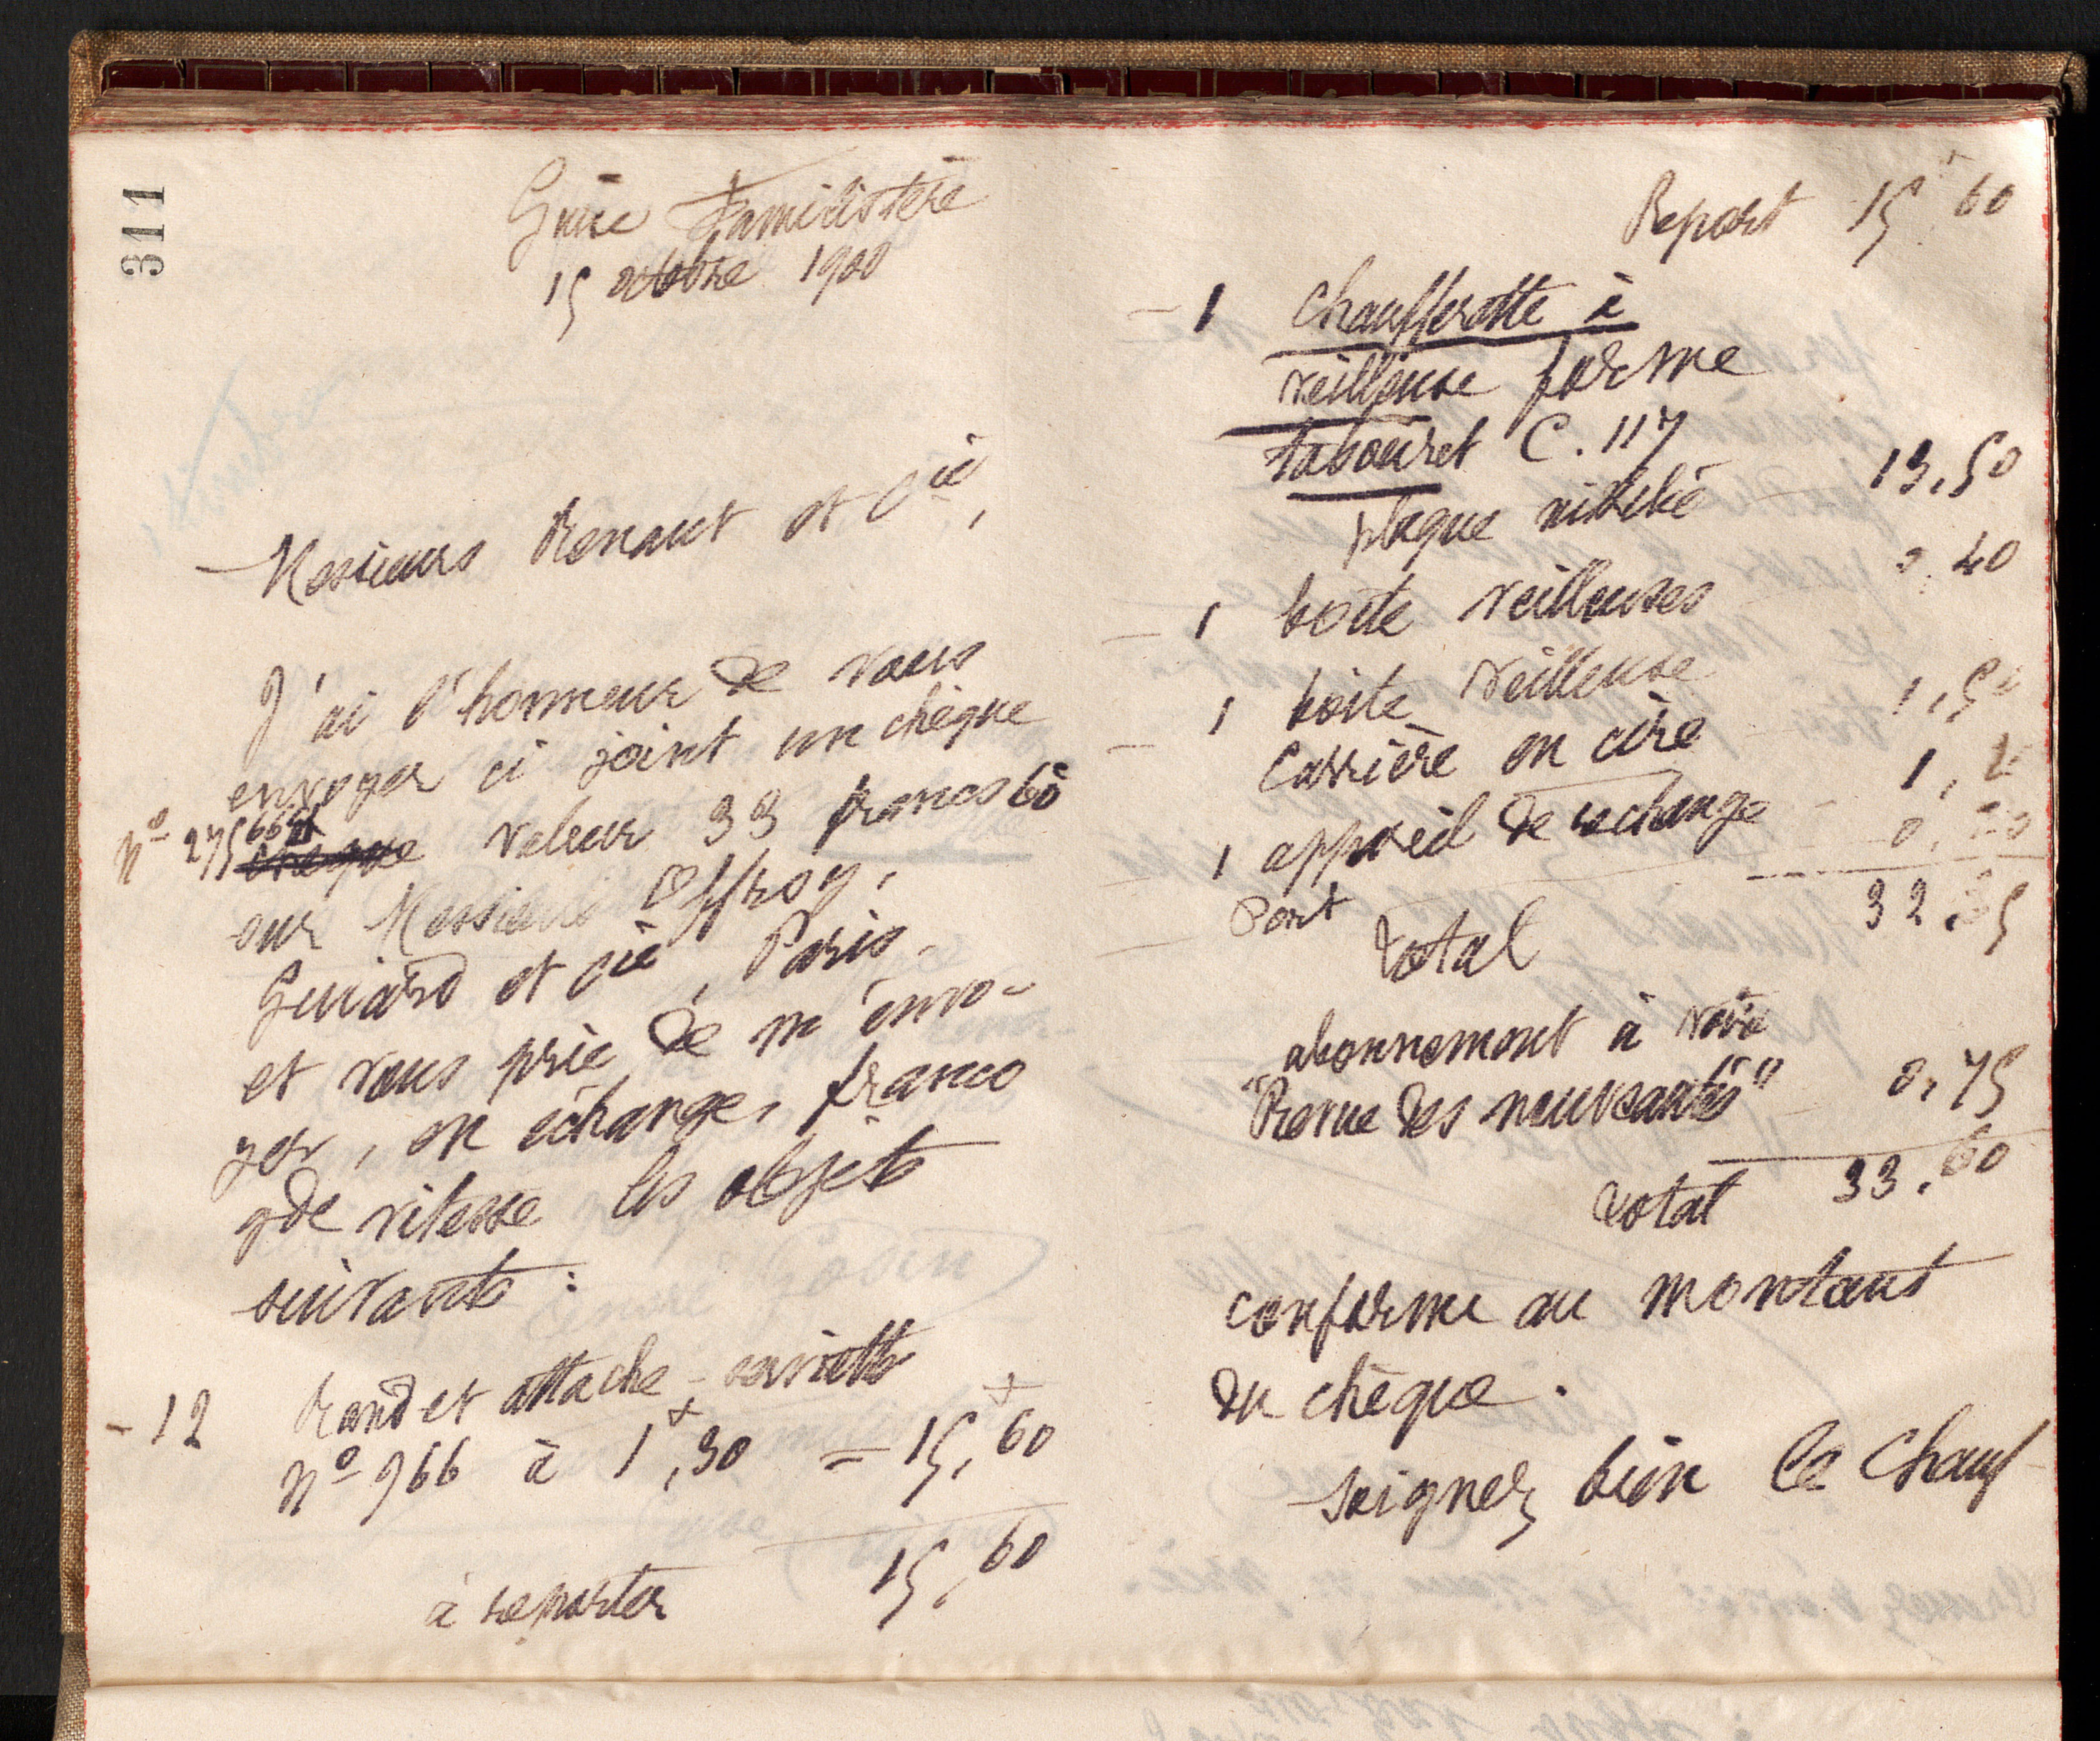 311
Guise Familistère
15 octobre 1900
Messieurs Renaut et Cie,
J'ai l'honneur de vous
envoyer ci joint un chèque
No 275
valeur 33 francs 60
sur Messieurs Offroy,
Guiard et Cie, Paris,
et vous prie de m'envo-
yer, en échange, franco
gde vitesse les objets
suivants :
- 12 attache-serviette
No 966 à 1f,30 = 15f,60
à reporter 15,60
Report 15f 60
- 1 Chaufferette à
veilleuse forme
tabouret C. 117
plaque nickelé 13,50
- 1 boîte veilleuses 0.40
- 1 boîte veilleuse
Carrière en cire 1,50
1 appareil de rechange 1,
Port 0,
Total 32 85
abonnement à votre
"Revue des nouveautés" 0,75
Total 33,60
conforme au montant
du chèque.
Soignez bien la Chauf